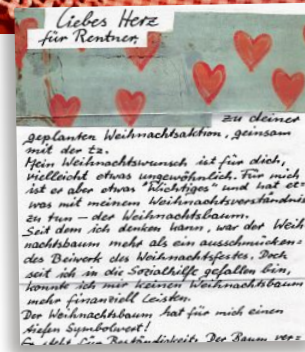 Liebes Herz
für Rentner,
zu deiner
geplanten Weihnachtsaktion, geinsam
mit der tz.
Mein Weihnachtswunsch ist für dich,
vielleicht etwas ungewöhnlich. Für mich
ist er aber etwas "Wichtiges" und hat et-
was mit meinem Weihnachtsverständnis
zu tun – der Weihnachtsbaum.
Seit dem ich denken kann, war der Weih
nachtsbaum mehr als ein ausschmücken-
des Beiwerk des Weihnachtsfestes. Doch
seit ich in die Sozialhilfe gefallen bin,
konnte ich mir keinen Weihnachtsbaum
mehr finanziell leisten.
Der Weihnachtsbaum hat für mich einen
tiefen Symbolwert!
Er steht für Beständigkeit. Der Baum ver-